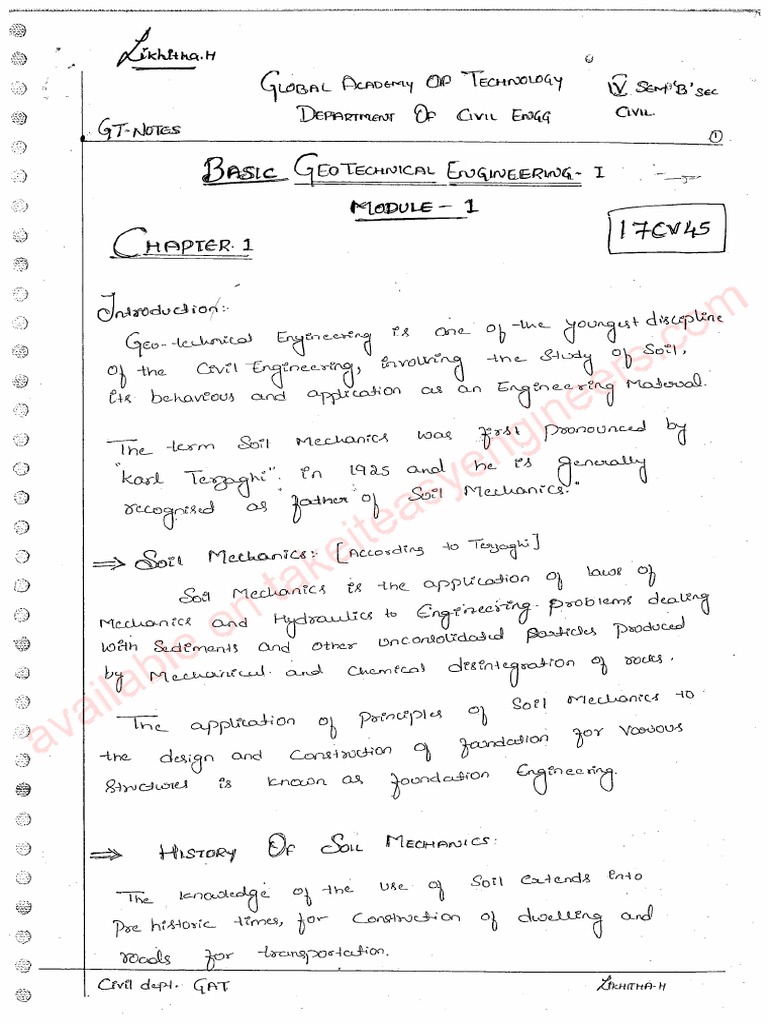 Likhitha.H
GLOBAL ACADEMY OF TECHNOLOGY
IV SEM 'B' SEC
DEPARTMENT OF CIVIL ENGG
CIVIL.
GT-NOTES
1
BASIC GEOTECHNICAL ENGINEERING - I
MODULE - 1
17CV45
CHAPTER.1
Introduction:-
Geo-technical Engineering is one of the youngest discipline
of the Civil Engineering, involving the study of Soil,
its behaviour and application as an Engineering Material.
The term Soil Mechanics was first pronounced by
"Karl Terzaghi" in 1925 and he is generally
recognised as "father of Soil Mechanics."
⇒ Soil Mechanics: [According to Terzaghi]
Soil Mechanics is the application of laws of
Mechanics and Hydraulics to Engineering problems dealing
with Sediments and other unconsolidated particles produced
by Mechanical and Chemical disintegration of rocks.
The application of principles of Soil Mechanics to
the design and Construction of foundation for various
Structures is known as foundation Engineering.
⇒ HISTORY OF SOIL MECHANICS:
The knowledge of the use of Soil extends into
Pre historic times, for Construction of dwelling and
roads for transportation.
Civil dept. GAT
LIKHITHA-H
available on takeiteasyengineers.com